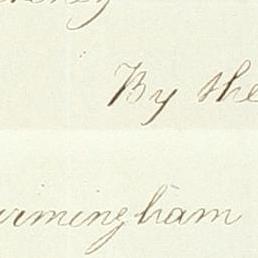 By the
irmingham